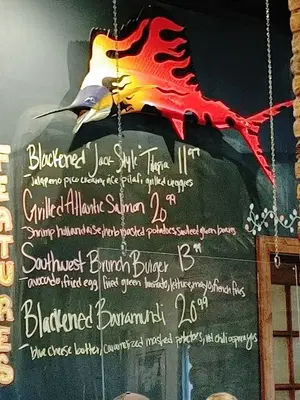 FEATURES
Blackened "Jack Style" Tilapia 11 99
jalapeno pico cream, rice pilaf, grilled veggies
Grilled Atlantic Salmon 20 99
shrimp hollandaise, herb roasted potatoes, sauteed green beans
Southwest Brunch Burger 13 99
avocado, fried egg, fried green tomato, lettuce, mayo, french fries
Blackened Barramundi 20 99
blue cheese butter, caramelized mashed potatoes, red chili asparagus